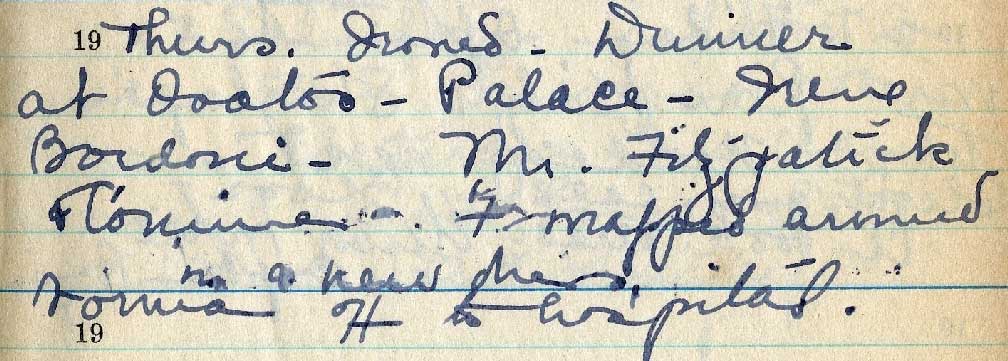 19 Thurs. Ironed - Dinner
at Doatoo - Palace - Irene
Bordoni - Mr. Fitzpatrick
mapped around
in a new dress.
off to hospital.
19